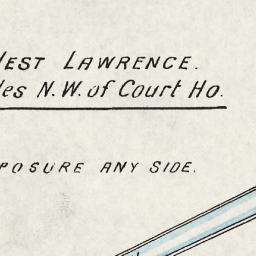 WEST LAWRENCE.
les N.W. of Court Ho.
POSURE ANY SIDE.